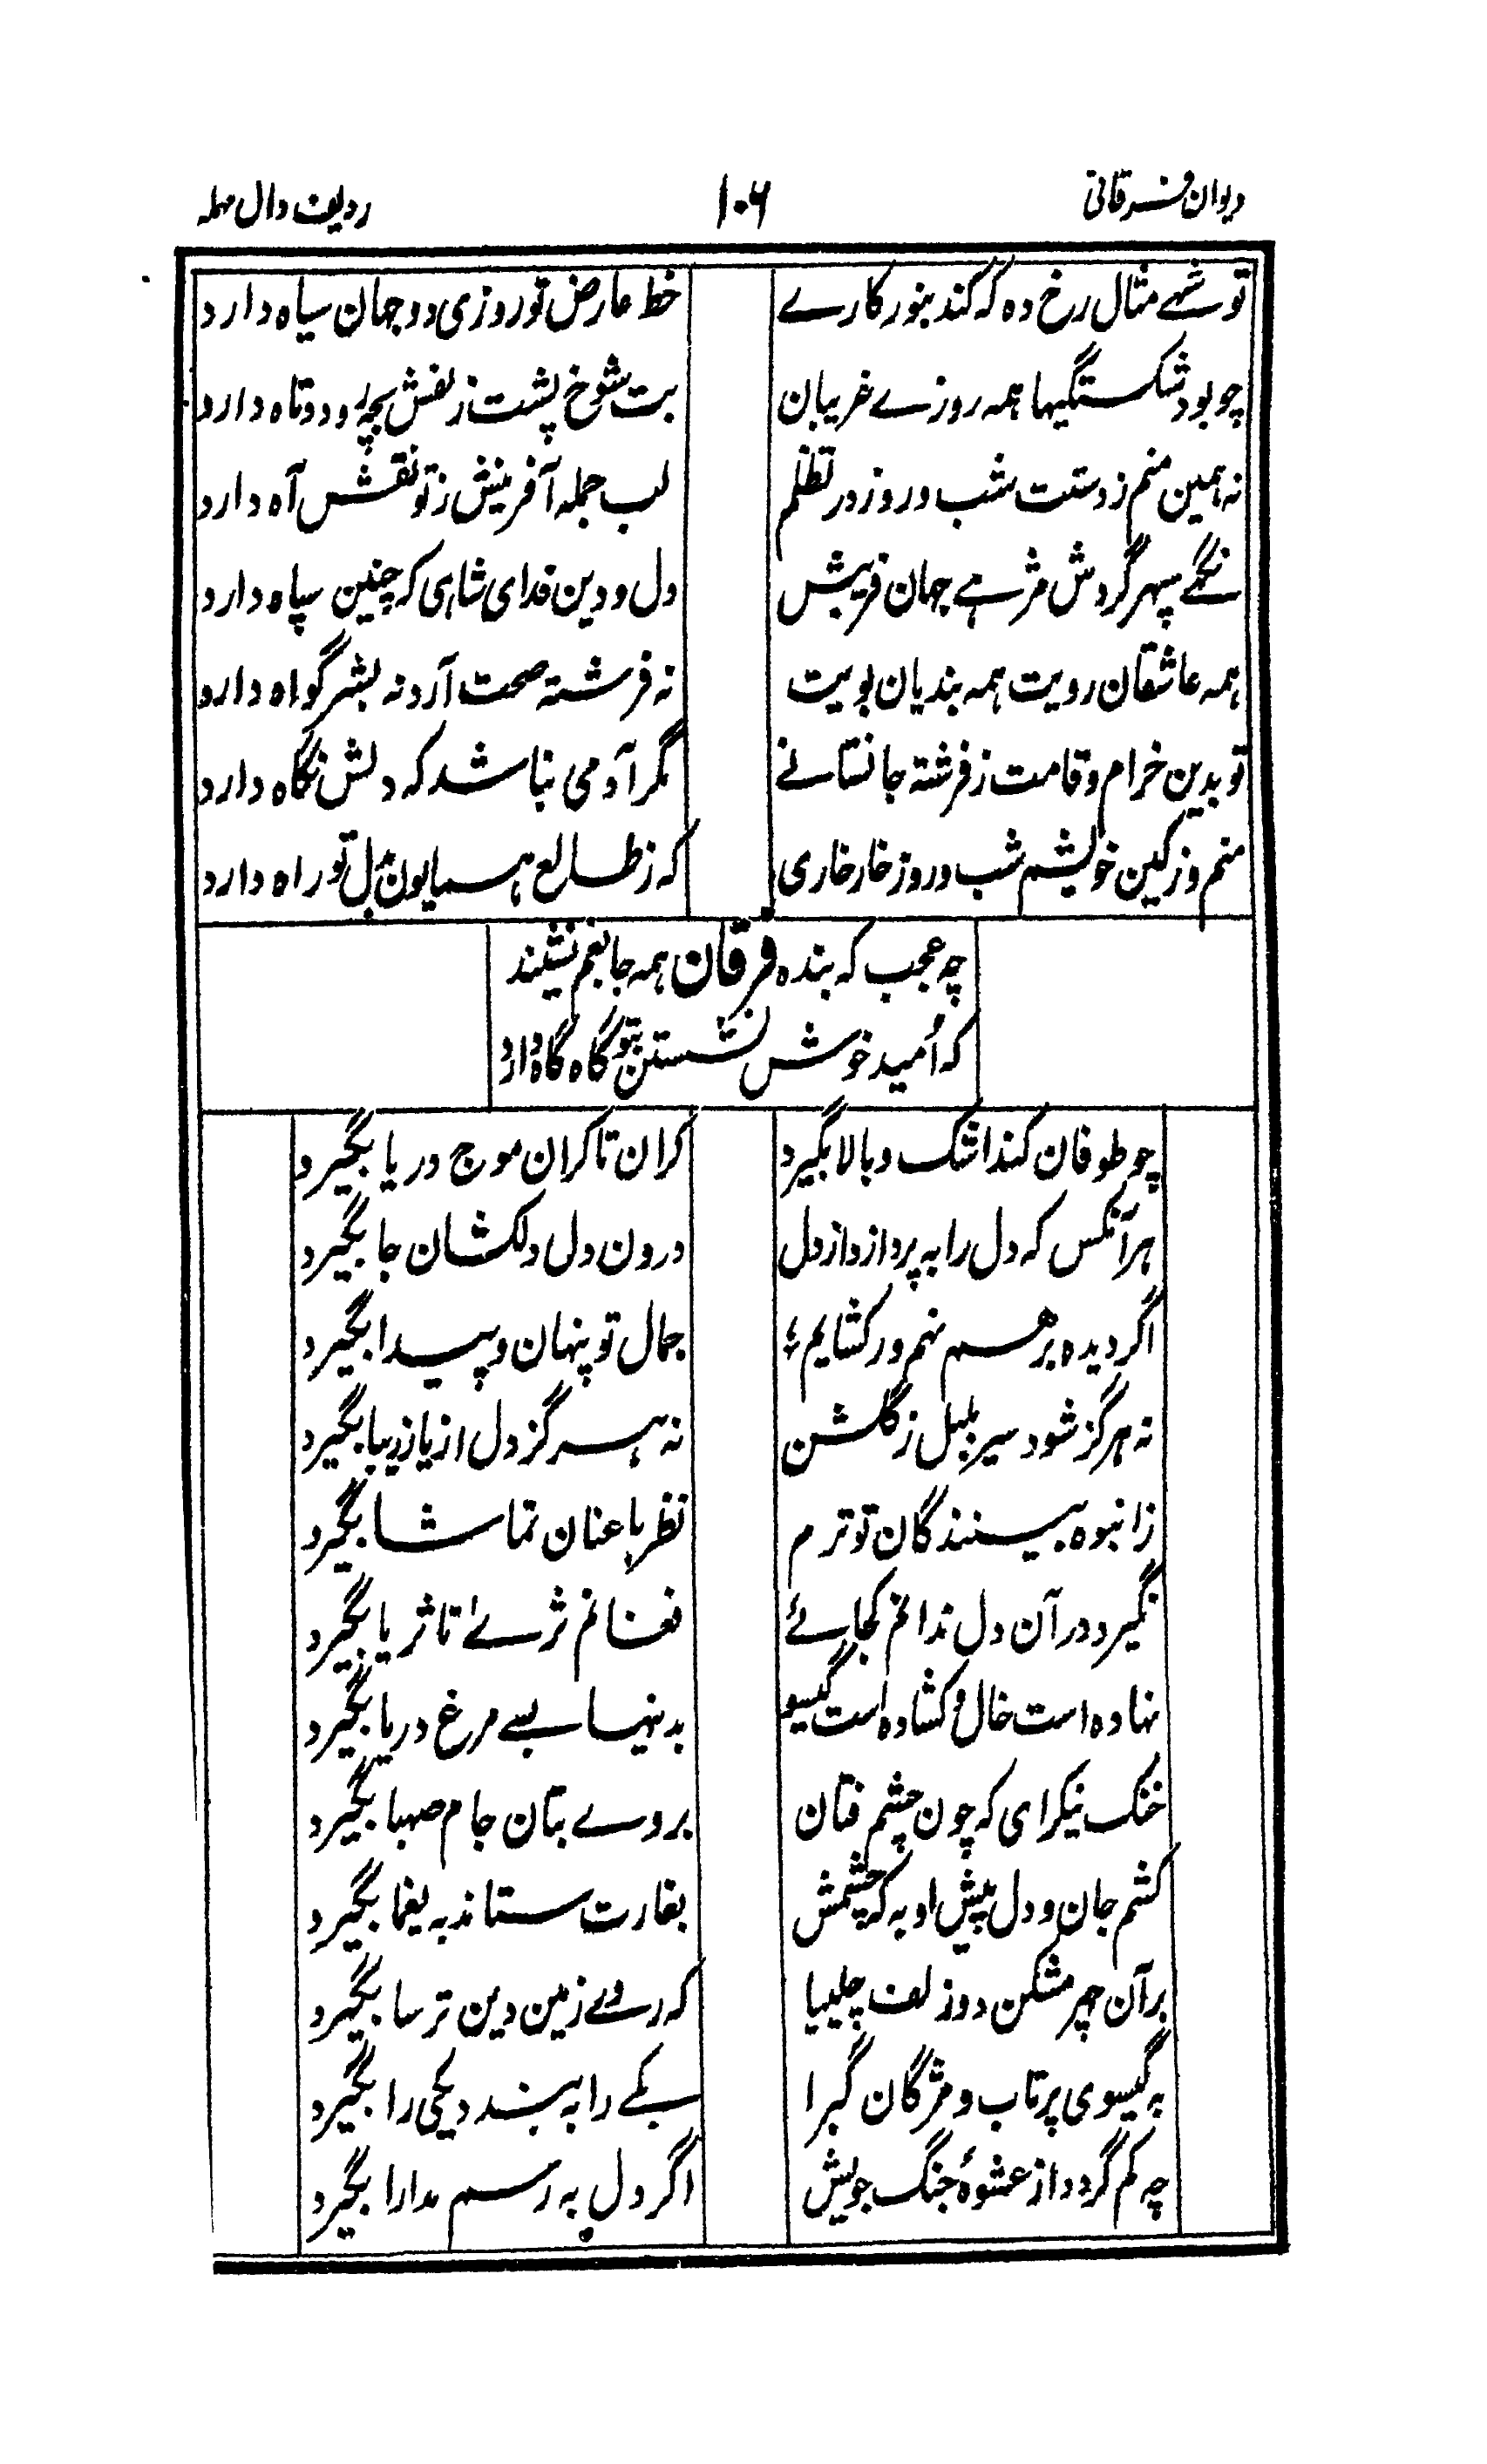 دیوان فرقانی ۱۰۶ ردیف دال مہملہ
تو شہے مثال رخ دہ کہ کند بنور کارے خط عارض تو روزی دو جہان سیاہ دارد
چو بود شکستگیہا ہمہ روزے غریبان بت شوخ پشت زلفش دوتاہ دارد
نہ ہمین منم ز دستت شب و روز در تظلم لب جملہ آفرینش ز تو نقش آہ دارد
نگہے سپہر گردش مژہ جہان فریبش دل و دین فدای شاہی کہ چنین سپاہ دارد
ہمہ عاشقان رویت ہمہ بندیان بویت نہ فرشتہ صحت آرد نہ بشر گواہ دارد
تو بدین خرام و قامت ز فرشتہ جانستانے مگر آدمی نباشد کہ دلش نگاہ دارد
منم و ز کین خویشم شب و روز خار خاری کہ ز طالع ہمایون بدل تو راہ دارد
چہ عجب کہ بندہ فرقان ہمہ جا بغم نشیند
کہ اُمید خوش نشستن بتو گاہ گاہ دارد
چو طوفان کند اشک و بالا بگیرد کران تا کران موج دریا بگیرد
ہر آنکس کہ دل را بہ پردازد از دل درون دل دلکشان جا بگیرد
اگر دیدہ برہم نہم ور کشایم جمال تو پنہان و پیدا بگیرد
نہ ہرگز شود سیر بلبل ز گلشن نہ ہرگز دل از یار زیبا بگیرد
ز انبوہ بینندگان تو ترسم نظرہا عنان تماشا بگیرد
نگیرد در آن دل ندانم کجائے فغانم ثرےٰ تا ثریا بگیرد
نہادہ است خال و کشادہ است گیسو بدینہا بسے مرغ دریا بگیرد
خنک نیکرای کہ چون چشم فتان بروے بتان جام صہبا بگیرد
کشم جان و دل پیش او بہ کہ چشمش بغارت ستاند بہ یغما بگیرد
بر آن چہر مشکن دو زلف چلیپا کہ روے زمین دین ترسا بگیرد
بہ گیسوی پرتاب و مژگان گیرا یکے را بہ بندد یکی را بگیرد
چہ کم گردد از عشوۂ جنگ جویش اگر دل بہ رسم مدارا بگیرد